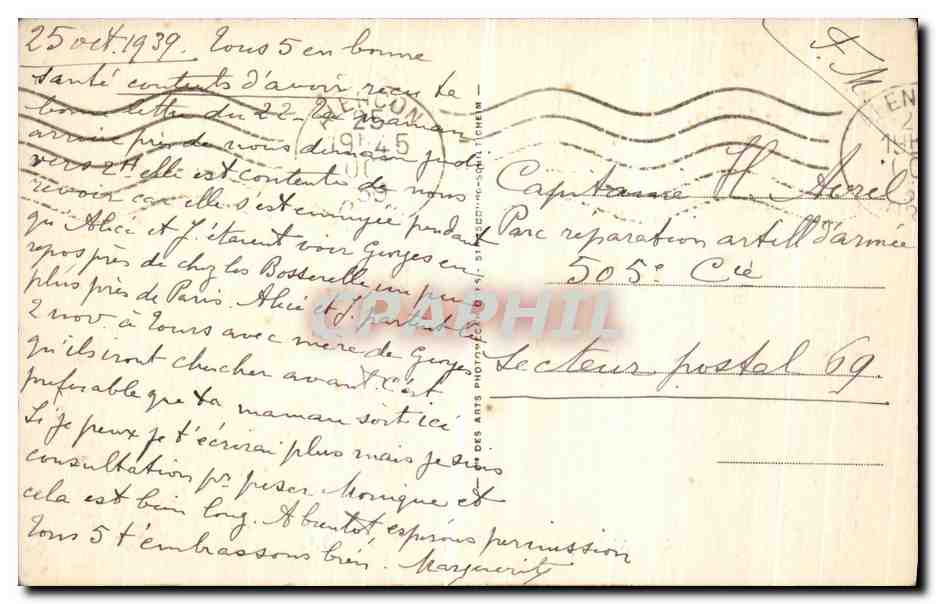 25 oct. 1939. Tous 5 en bonne
santé contents d'avoir reçu ta
bonne lettre du 22. Ta maman
arrive près de nous demain jeudi
vers 2h elle est contente de nous
revoir car elle s'est ennuyée pendant
qu'Alice et J. étaient voir Georges en
repos près de chez les Bosserelle un peu
plus près de Paris. Alice et J. partent le
2 nov. à Tours avec mère de Georges
qu'ils iront chercher avant c'est
préférable que ta maman soit ici
Si je peux je t'écrirai plus mais je suis
consultation pr peser Monique et
cela est bien long. A bientôt, espérons permission
Tous 5 t'embrassons bien. Marguerite
F.M.
Capitaine H
Parc réparation artill d'armée
505e Cie
Secteur postal 69.
ALENÇON
25
19H45
CRAPHIL